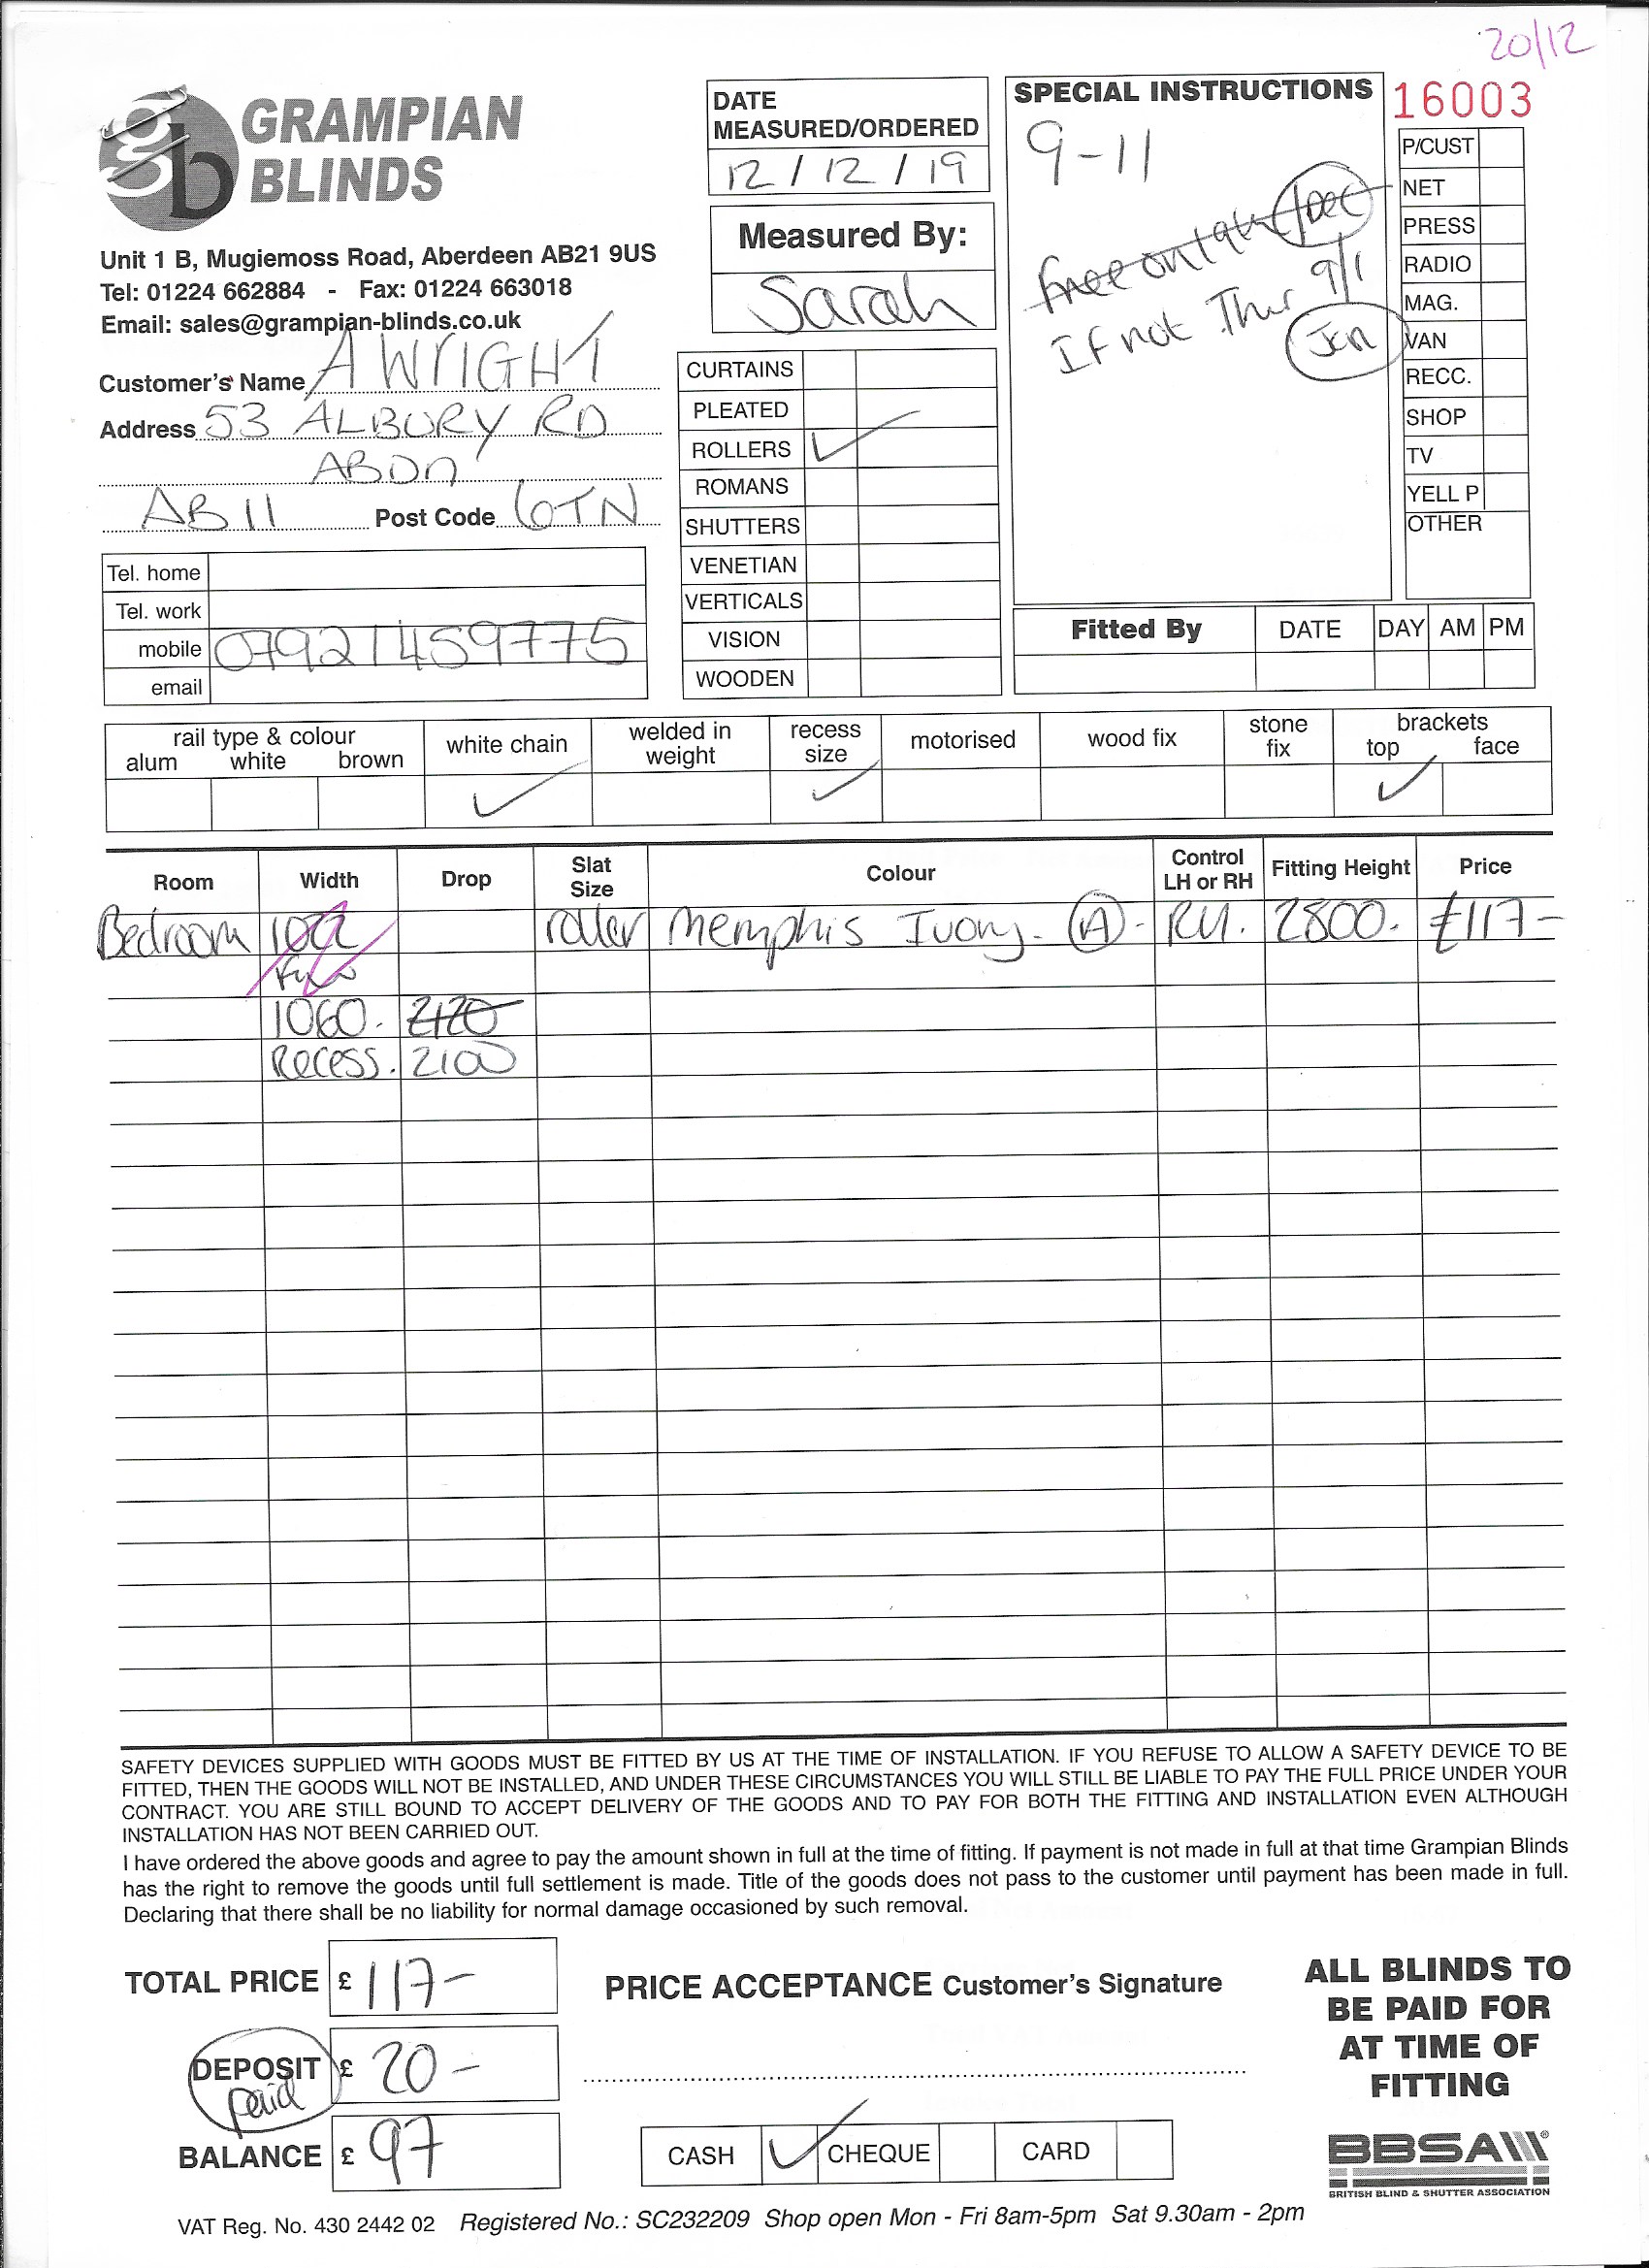 20/12
GRAMPIAN
BLINDS
Unit 1 B, Mugiemoss Road, Aberdeen AB21 9US
Tel: 01224 662884 - Fax: 01224 663018
Email: sales@grampian-blinds.co.uk
Customer's Name A WRIGHT
Address 53 ALBURY RD
ABDn
AB11 Post Code 6TN
Tel. home
Tel. work
mobile 07921459775
email
DATE
MEASURED/ORDERED
12 / 12 / 19
Measured By:
Sarah
CURTAINS
PLEATED
ROLLERS ✓
ROMANS
SHUTTERS
VENETIAN
VERTICALS
VISION
WOODEN
SPECIAL INSTRUCTIONS
9-11
free on Dec
If not Thur 9/1
Jan
16003
P/CUST
NET
PRESS
RADIO
MAG.
VAN
RECC.
SHOP
TV
YELL P
OTHER
Fitted By DATE DAY AM PM
rail type & colour white chain welded in weight recess size motorised wood fix stone fix brackets
alum white brown top face
✓ ✓ ✓
Room Width Drop Slat Size Colour Control LH or RH Fitting Height Price
Bedroom roller Memphis Ivory. (A) - RH. 2800. £117-
1060. 2120
Recess. 2100
SAFETY DEVICES SUPPLIED WITH GOODS MUST BE FITTED BY US AT THE TIME OF INSTALLATION. IF YOU REFUSE TO ALLOW A SAFETY DEVICE TO BE
FITTED, THEN THE GOODS WILL NOT BE INSTALLED, AND UNDER THESE CIRCUMSTANCES YOU WILL STILL BE LIABLE TO PAY THE FULL PRICE UNDER YOUR
CONTRACT. YOU ARE STILL BOUND TO ACCEPT DELIVERY OF THE GOODS AND TO PAY FOR BOTH THE FITTING AND INSTALLATION EVEN ALTHOUGH
INSTALLATION HAS NOT BEEN CARRIED OUT.
I have ordered the above goods and agree to pay the amount shown in full at the time of fitting. If payment is not made in full at that time Grampian Blinds
has the right to remove the goods until full settlement is made. Title of the goods does not pass to the customer until payment has been made in full.
Declaring that there shall be no liability for normal damage occasioned by such removal.
TOTAL PRICE £ 117-
DEPOSIT £ 20-
paid
BALANCE £ 97
PRICE ACCEPTANCE Customer's Signature
CASH ✓ CHEQUE CARD
ALL BLINDS TO
BE PAID FOR
AT TIME OF
FITTING
BBSA
BRITISH BLIND & SHUTTER ASSOCIATION
VAT Reg. No. 430 2442 02 Registered No.: SC232209 Shop open Mon - Fri 8am-5pm Sat 9.30am - 2pm